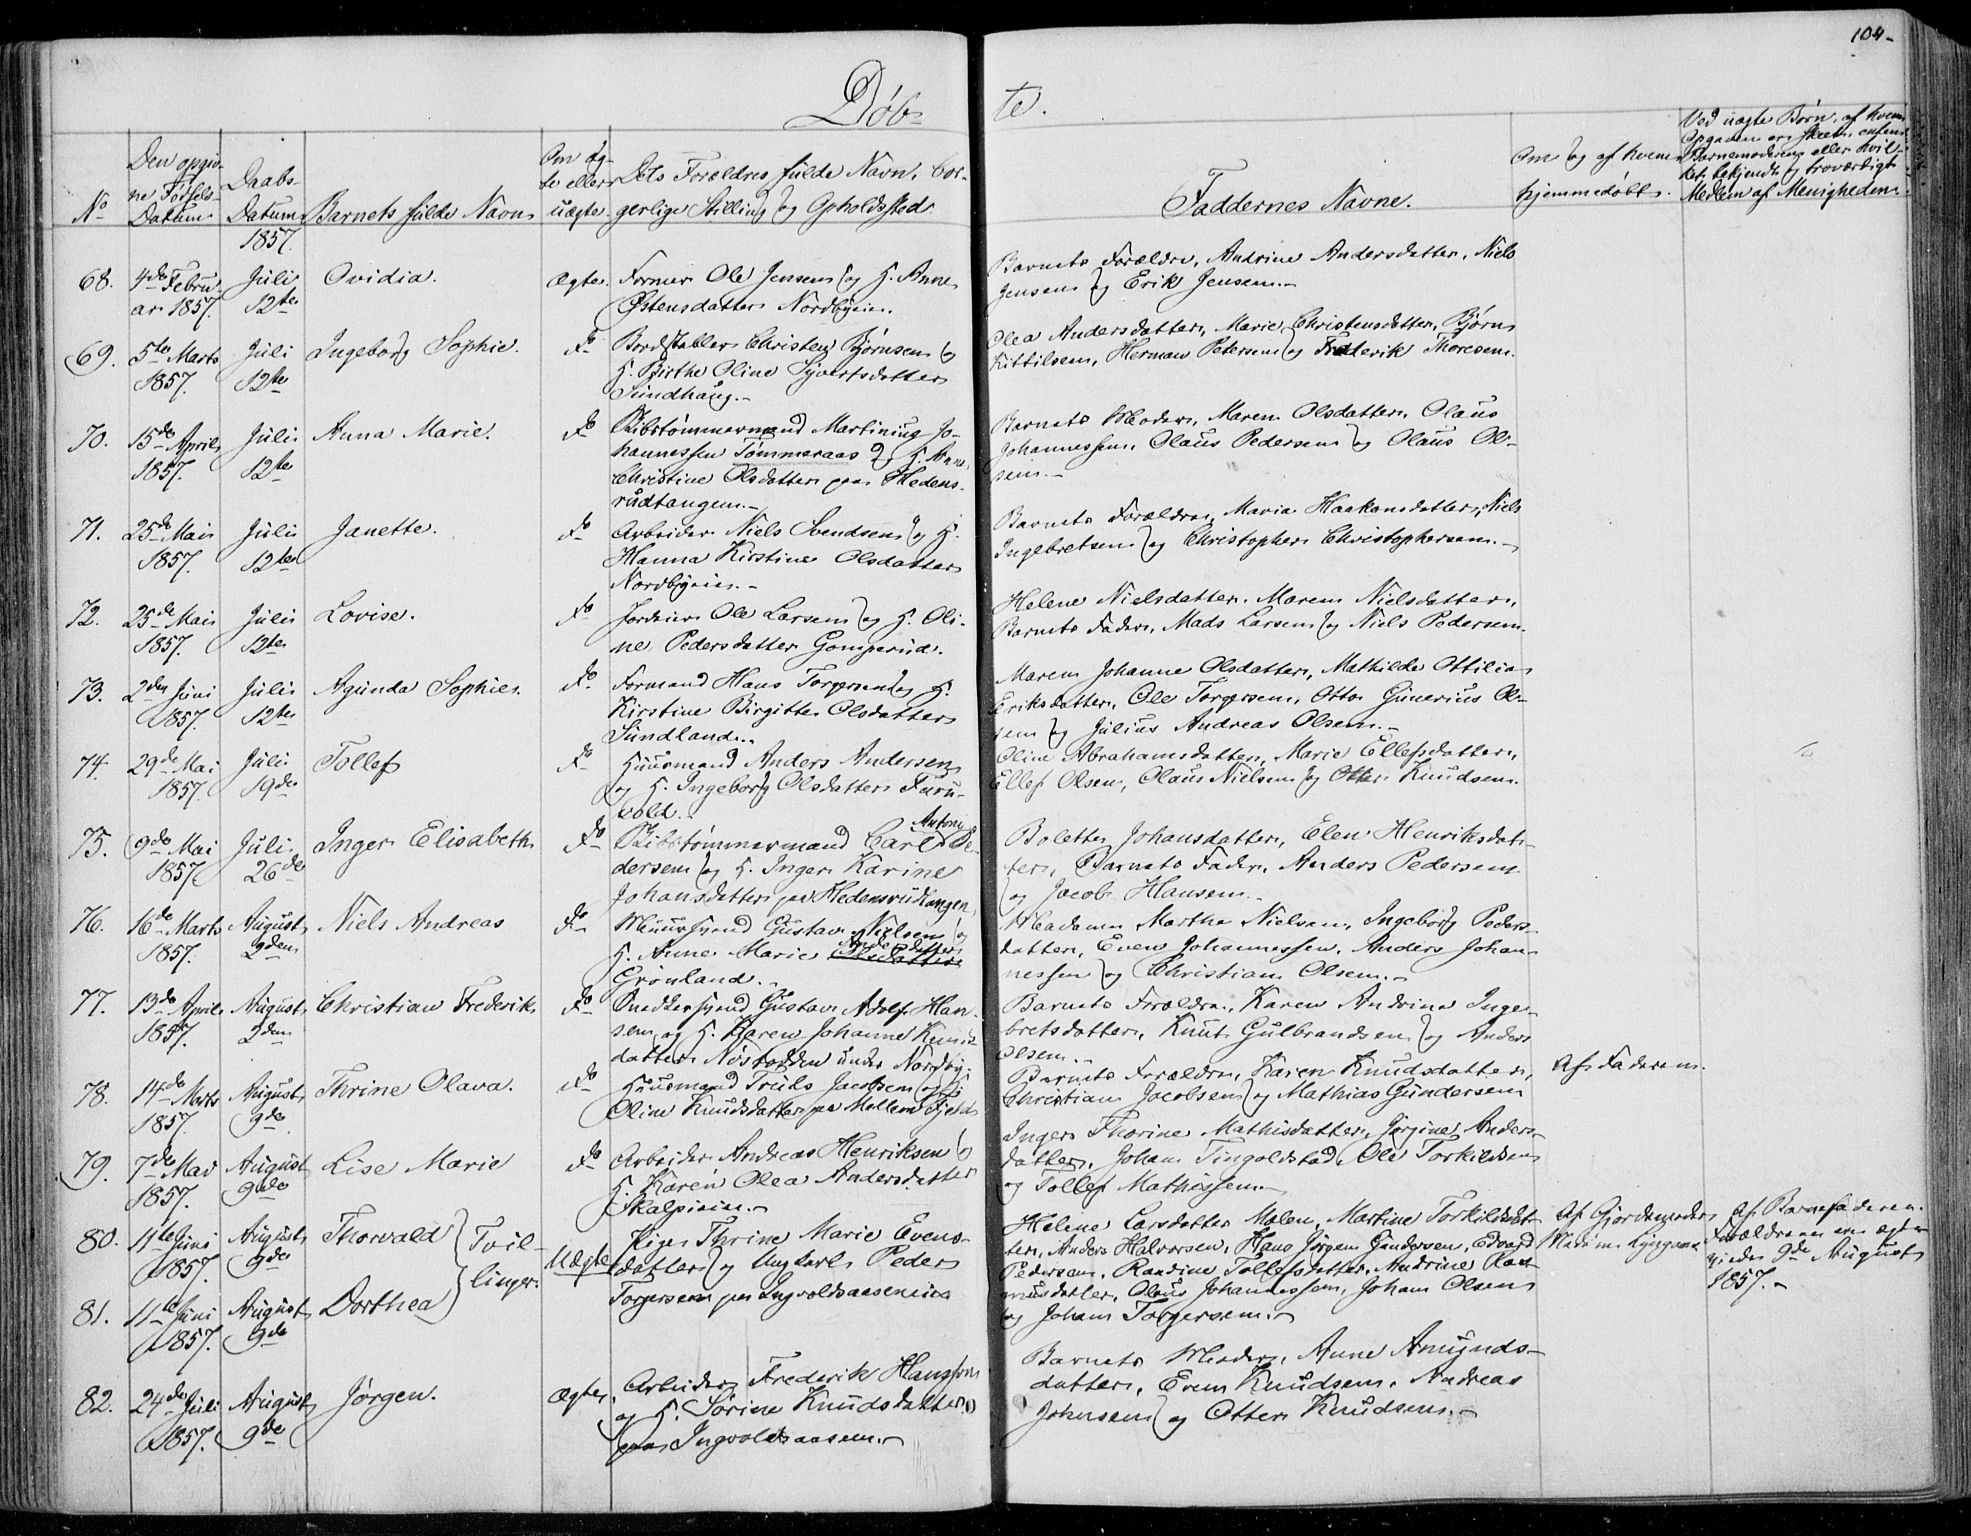 104.
Døb-
te.
No
Den opgiv-
ne Fødsels-
Datum
Daabs-
Datum
Barnets fulde Navn
Om æg-
te eller
uægte.
Dets Forældres fulde Navn, bor-
gerlige Stilling og Opholdssted
Faddernes Navne.
Om og af hvem
hjemmedøbt.
Ved uægte Børn, af hvem
Opgaven er skeet, enten
Barnemoderen eller hvil-
ket bekjendt og troværdigt
Medlem af Menigheden.
1857.
68. 4de Febru-
ar 1857.
Juli
12te
Ovidia.
Ægte.
Former Ole Jensen og H. Anne
Østensdatter Nordbyeien.
Barnets Forældre, Andrine Andersdatter, Niels
Jensen og Erik Jensen.
69. 5te Marts
1857.
Juli
12te
Ingeborg Sophie.
Do
Bordstabler Christen Bjørnsen og
H. Birthe Oline Syvertsdatter
Sundhaug.
Olea Andersdatter, Marie Christensdatter, Bjørn
Kittilsen, Herman Petersen og Frederik Thoresen.
70. 15de April
1857.
Juli
12te
Anna Marie.
Do
Skibstømmermand Martinius Jo-
hannessen Tømmeraas og H. Anne
Christine Olsdatter paa Hedens-
rudtangen.
Barnets Moder, Maren Olsdatter, Olaus
Johannessen, Olaus Pedersen og Olaus Ol-
sen.
71. 25de Mai
1857.
Juli
12te
Janette.
Do
Arbeider Niels Svendsen og H.
Hanna Kirstine Olsdatter
Nordbyeien.
Barnets Forældre, Maria Haakonsdatter, Niels
Ingebretsen og Christopher Christophersen.
72. 25de Mai
1857.
Juli
12te
Lovise.
Do
Jordeier Ole Larsen og H. Oli-
ne Pedersdatter Gomperud.
Helene Nielsdatter, Maren Nielsdatter,
Barnets Fader, Mads Larsen og Niels Pedersen.
73. 2den Juni
1857.
Juli
12te
Agunda Sophie.
Do
Formand Hans Torgersen og H.
Kirstine Birgitte Olsdatter
Sundland.
Maren Johanne Olsdatter, Mathilde Ottilia
Eriksdatter, Ole Torgersen, Otto Gunerius Ol-
sen og Julius Andreas Olsen.
74. 29de Mai
1857.
Juli
19de
Tollef
Do
Huusmand Anders Andersen
og H. Ingeborg Olsdatter Furu-
vold.
Oline Abrahamsdatter, Marie Ellefsdatter,
Ellef Olsen, Olaus Nielsen og Otter Knudsen.
75. 9de Mai
1857.
Juli
26de
Inger Elisabeth
Do
Skibstømmermand Carl Anton Pe-
dersen og H. Inger Karine
Johansdatter paa Hedensrudtangen.
Bolette Johansdatter, Elen Henriksdat-
ter, Barnets Fader, Anders Pedersen
og Jacob Hansen.
76. 16de Marts
1857.
August
2den
Niels Andreas
Do
Muursvend Gustav Nielsen og
H. Anne Marie Olsdatter Andersdatter
Grønland.
Madame Marthe Nielsen, Ingeborg Peders-
datter, Even Johannessen, Anders Johan-
nessen og Christian Olsen.
77. 13de April
1857.
August
2den
Christian Frederik
Do
Snedkersvend Gustav Adolf Han-
sen og H. Karen Johanne Knuds-
datter Nøstodden under Nordby.
Barnets Forældre, Karen Andrine Inge-
bretsdatter, Knut Gulbrandsen og Anders
Olsen.
78. 14de Marts
1857.
August
9de
Thrine Olava.
Do
Huusmand Truls Jacobsen og H.
Oline Knudsdatter paa Mellem Fjeld
Barnets Forældre, Karen Knudsdatter,
Christian Jacobsen og Mathias Gundersen
Af Faderen.
79. 7de Mai
1857.
August
9de
Lise Marie
Do
Arbeider Andreas Henriksen og
H. Karen Olea Andersdatter
Skalpeien.
Inger Thorine Mathisdatter, Jørgine Anders-
datter, Johan Tingoldstad, Ole Torkildsen
og Tollef Mathissen.
80. 11te Juni
1857.
August
9de
Thorvald
Tvil-
linger.
Uægte
Pige Thrine Marie Evens-
datter og Ungkarl Peder
Torgersen paa Ingvoldsaasen
Helene Larsdatter Malen, Martine Torkildsdat-
ter, Anders Halvorsen, Hans Jørgen Gundersen, Edvard
Pedersen, Randine Tollefsdatter, Andrine Ras-
musdatter, Olaus Johannessen, Johan Olsen
og Johan Torgersen.
Af Gjordemoder
Madame
Af Barnefaderen.
Forældrene ere ægte-
viede 9de August
1857.
81. 11te Juni
1857.
August
9de
Dorthea
82. 24de Juli
1857.
August
9de
Jørgen.
Ægte.
Arbeider Frederik Hanssen
og H. Sørine Knudsdatter
paa Ingvoldsaasen.
Barnets Moder, Anne Amunds-
datter, Even Knudsen, Andreas
Johnsen og Otter Knudsen.